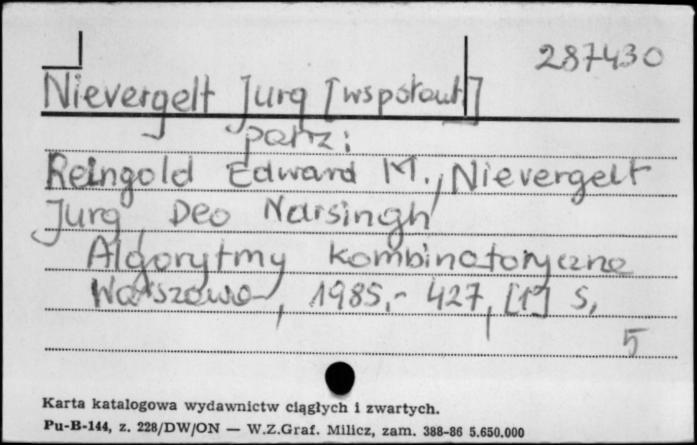 287430
Nievergelt Jurg [współaut.]
patrz:
Reingold Edward M., Nievergelt
Jurg, Deo Narsingh
Algorytmy kombinatoryczne
Warszawa, 1985,- 427, [1] s,
5
Karta katalogowa wydawnictw ciągłych i zwartych.
Pu-B-144, z. 228/DW/ON — W.Z.Graf. Milicz, zam. 388-86 5.650.000